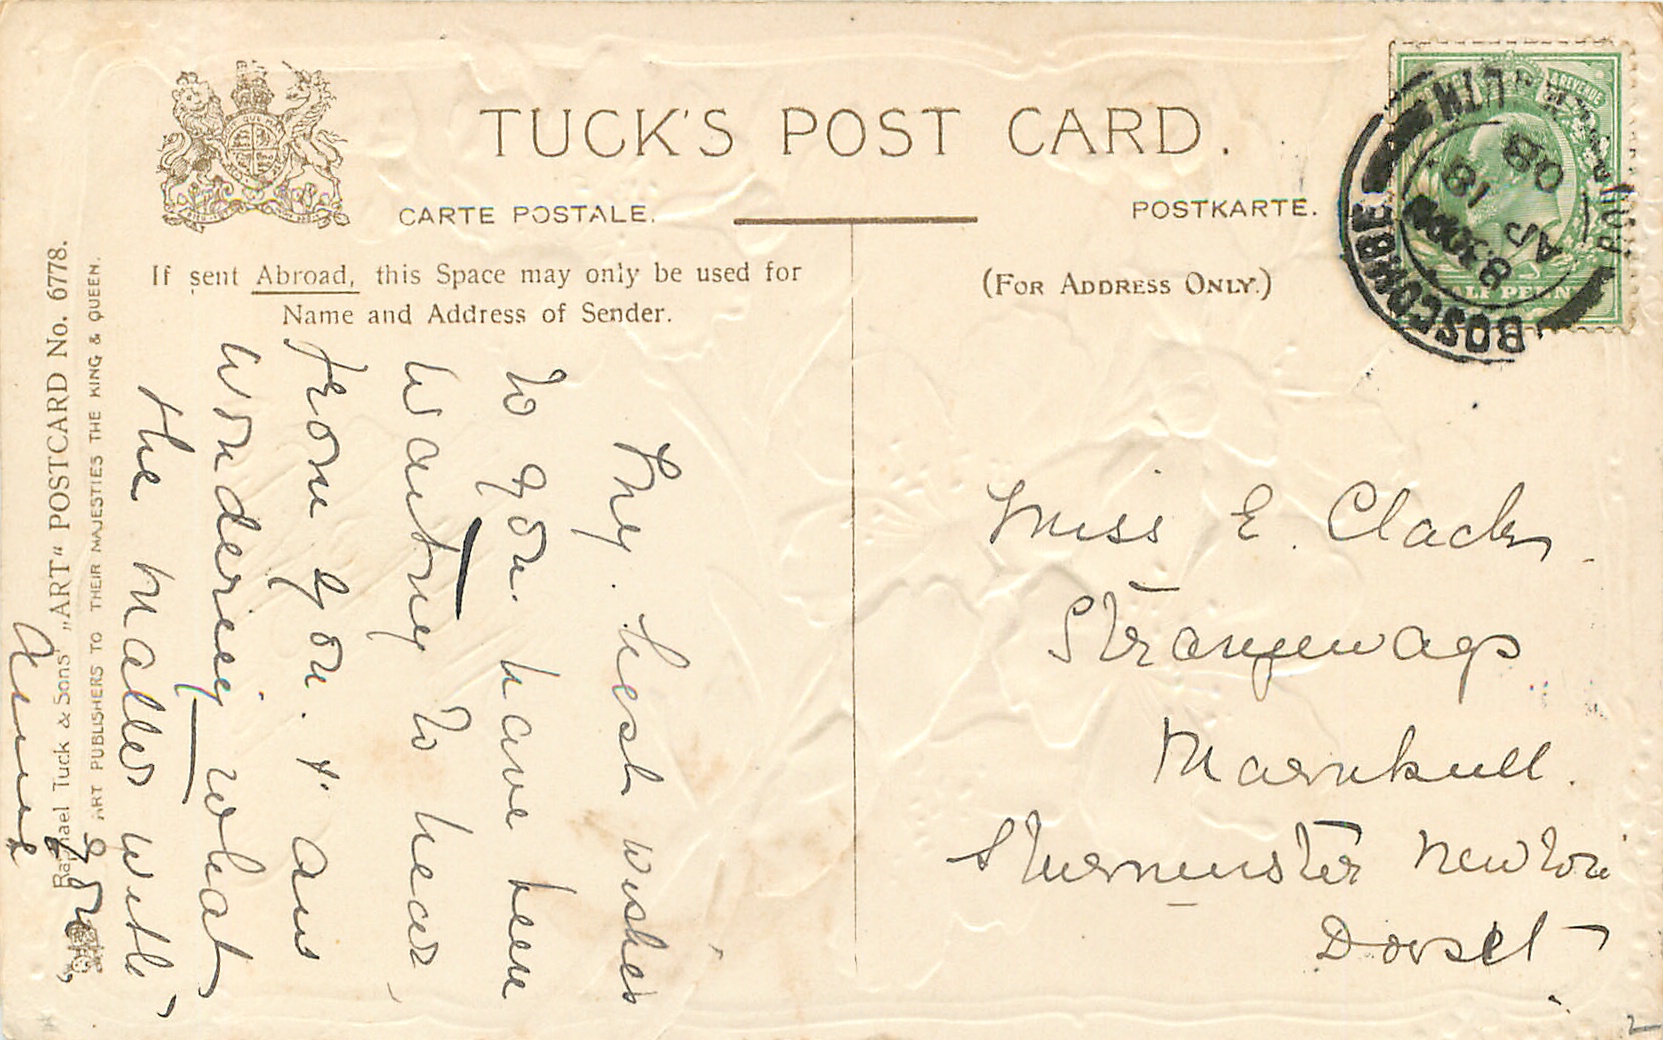 TUCK'S POST CARD.
CARTE POSTALE.
POSTKARTE.
If sent Abroad, this Space may only be used for
Name and Address of Sender.
(FOR ADDRESS ONLY.)
Raphael Tuck & Sons' „ART" POSTCARD No. 6778.
ART PUBLISHERS TO THEIR MAJESTIES THE KING & QUEEN.
My best wishes
to you. have been
wanting to hear
from you. & am
wondering what
the matter with
you
Annie
Miss E. Clack
Strangeways
Marnhull.
Sturminster Newton
Dorset
BOSCOMBE
BOURNEMOUTH
8.30PM
AP 18
08
& REVENUE
HALF PENNY
2